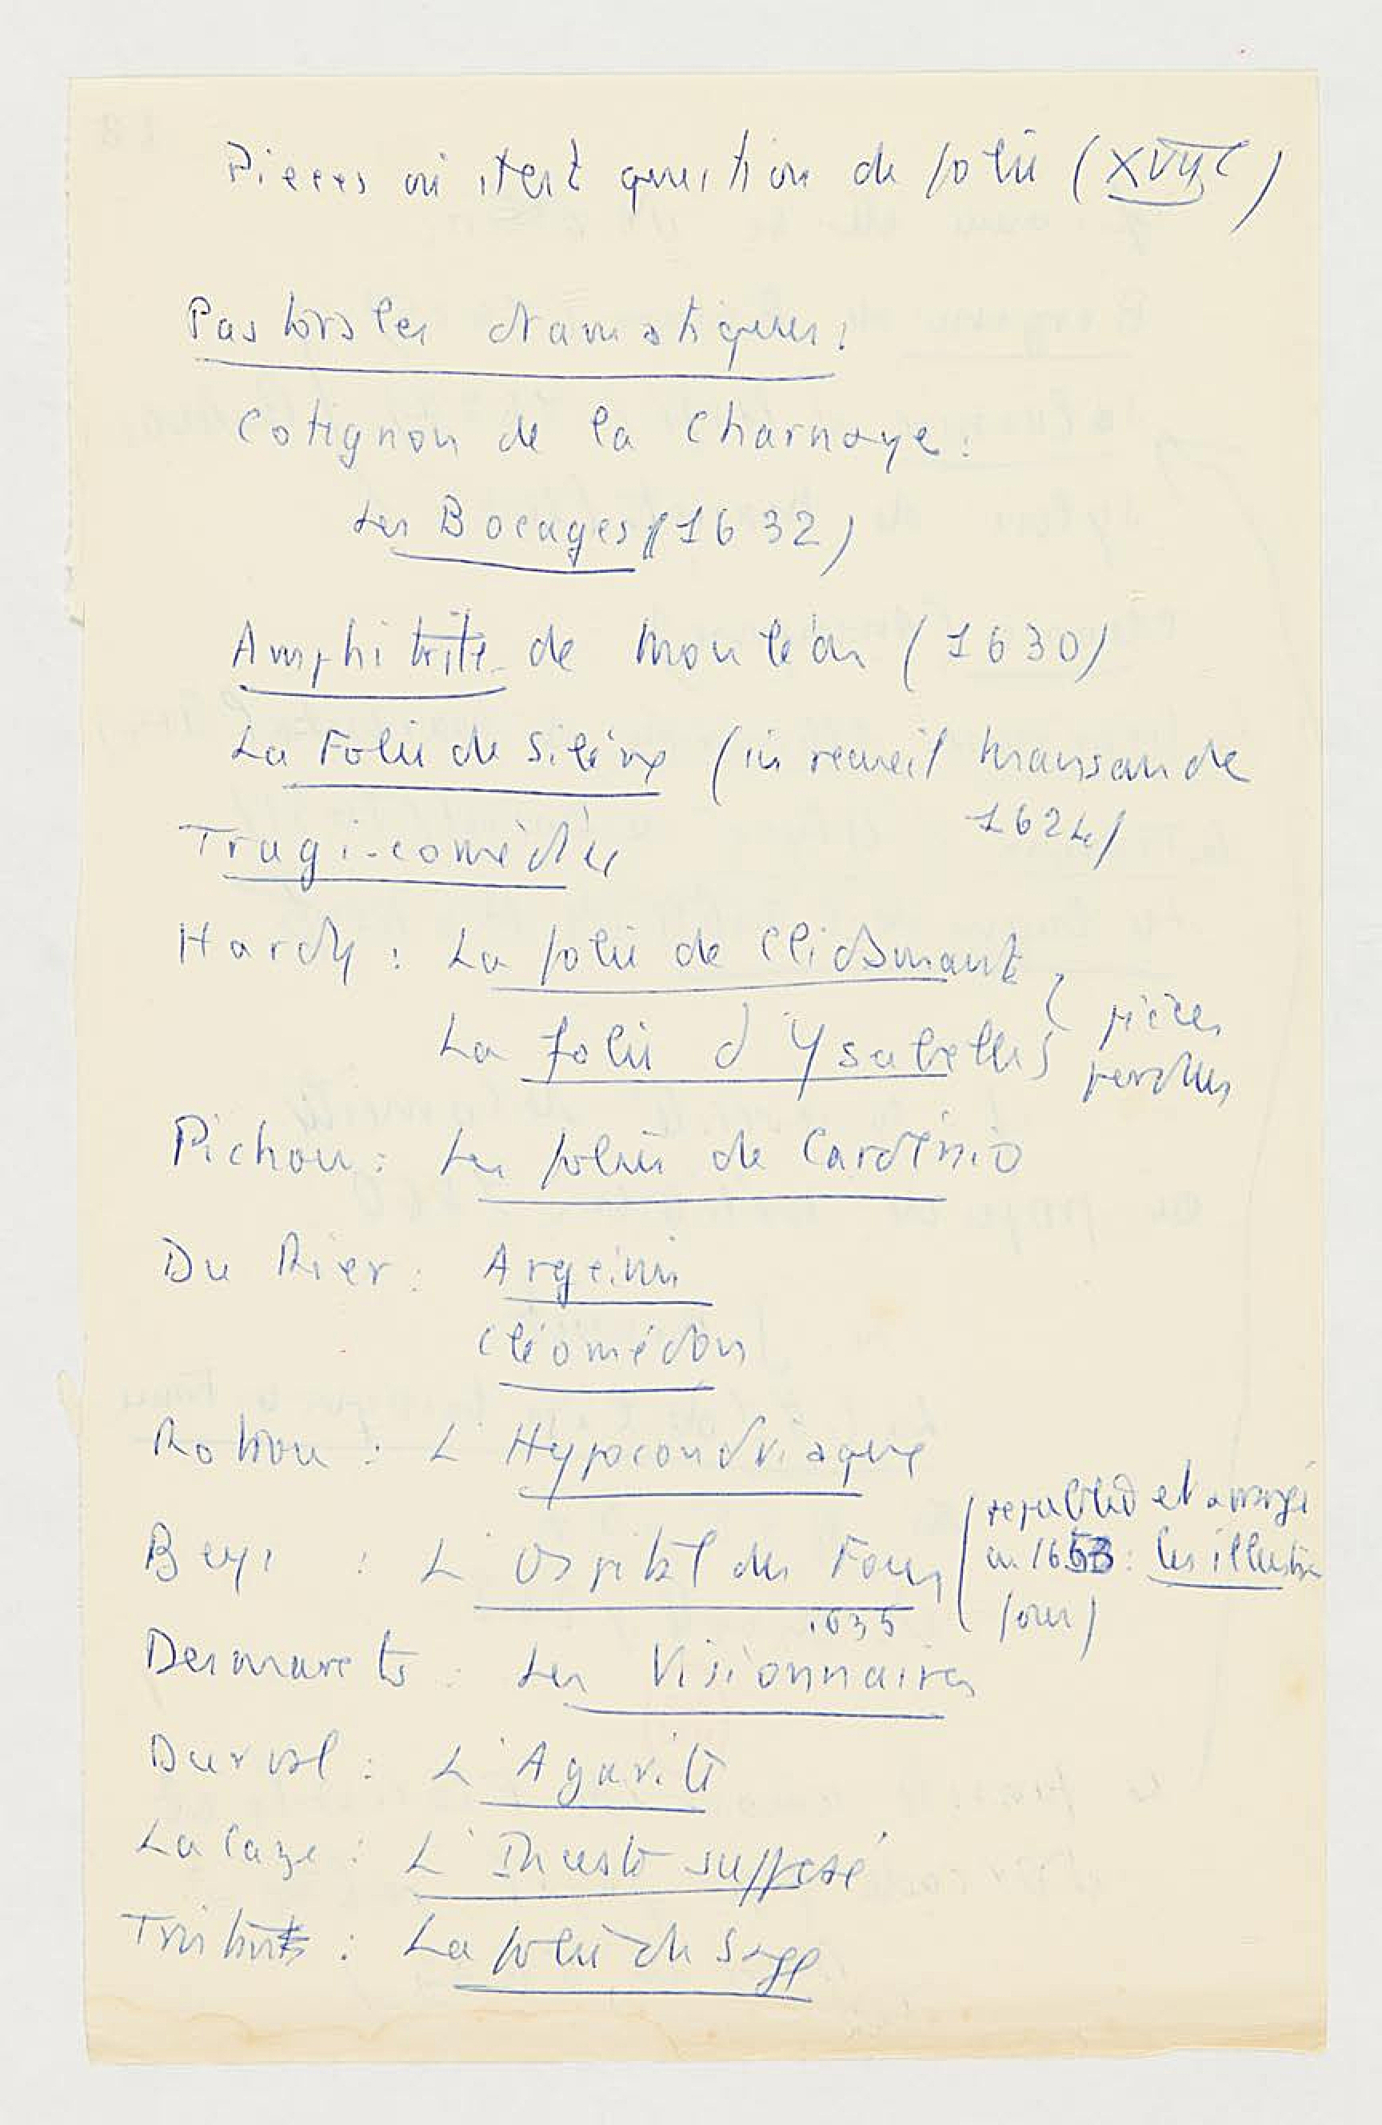 Pièces où il est question de folie (XVIIe)
Pastorales dramatiques :
Cotignon de la Charnaye :
Les Bocages (1632)
Amphitrite de Monléon (1630)
La Folie de Silène (in recueil
1624)
Tragi-comédie
Hardy : La folie de Clidamant
La folie d'Ysabelle
pièces
perdues
Pichou : Les folies de Cardénio
Du Rier : Argénis
Cléomédon
Rotrou : L'Hypocondriaque
Beys : L'Ospital des Fous
1635
(republié et
en 1653 : les illustres
fous)
Desmarets : Les Visionnaires
Durval : L'Agarite
La Caze : L'Inceste supposé
Tristan : La folie du Sage